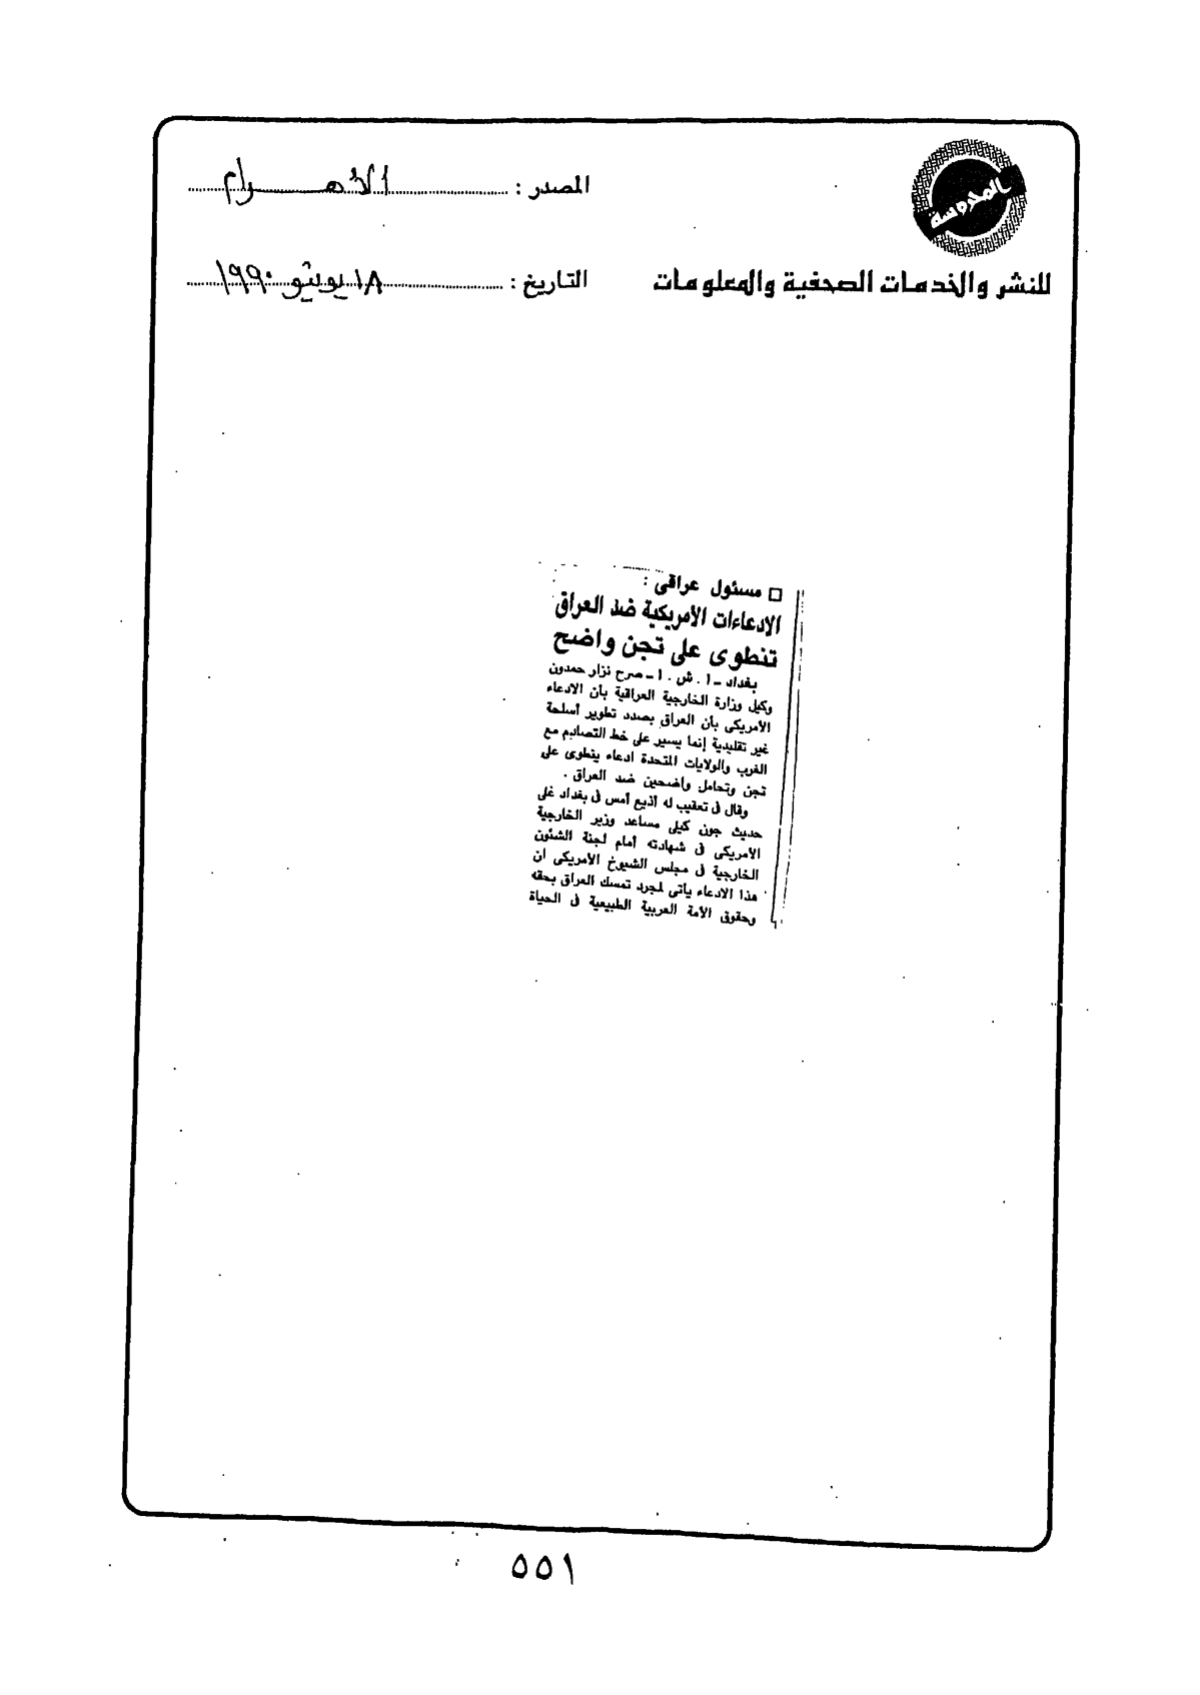 المحروسة
للنشر والخدمات الصحفية والمعلومات
المصدر : الأهرام
التاريخ : ١٨ يونيو ١٩٩٠
□ مسئول عراقى :
الادعاءات الأمريكية ضد العراق
تنطوى على تجن واضح
بغداد - ا . ش . ا - صرح نزار حمدون
وكيل وزارة الخارجية العراقية بأن الادعاء
الأمريكى بأن العراق بصدد تطوير أسلحة
غير تقليدية إنما يسير على خط التصادم مع
الغرب والولايات المتحدة ادعاء ينطوى على
تجن وتحامل واضحين ضد العراق .
وقال فى تعقيب له أذيع أمس فى بغداد على
حديث جون كيلى مساعد وزير الخارجية
الأمريكى فى شهادته أمام لجنة الشئون
الخارجية فى مجلس الشيوخ الأمريكى ان
هذا الادعاء يأتى لمجرد تمسك العراق بحقه
وحقوق الأمة العربية الطبيعية فى الحياة
٥٥١